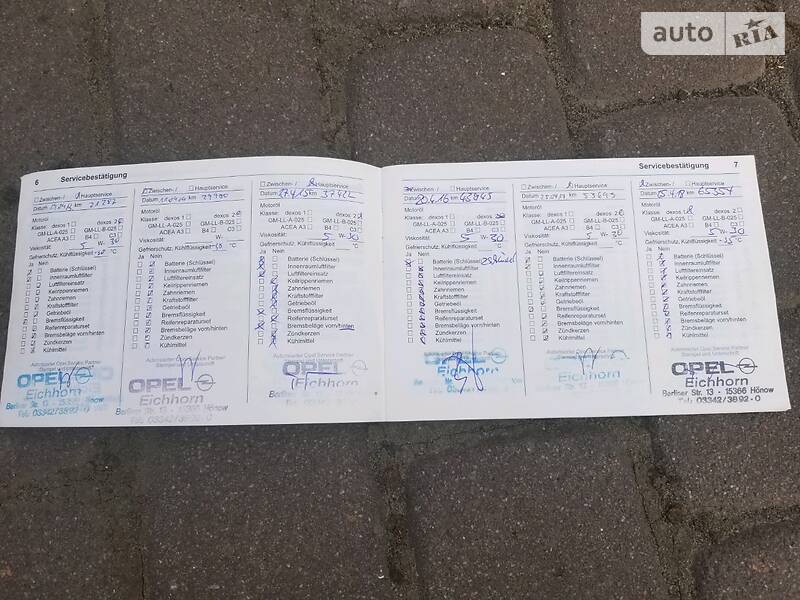 auto RIA
6 Servicebestätigung
Zwischen- / Hauptservice
Datum km
Motoröl
Klasse: dexos 1 dexos 2
GM-LL-A-025 GM-LL-B-025
ACEA A3 B4 C3
Viskosität: 5 W- 30
Gefrierschutz, Kühlflüssigkeit °C
Ja Nein
Batterie (Schlüssel)
Innenraumluftfilter
Luftfiltereinsatz
Keilrippenriemen
Zahnriemen
Kraftstofffilter
Getriebeöl
Bremsflüssigkeit
Reifenreparaturset
Bremsbeläge vorn/hinten
Zündkerzen
Kühlmittel
OPEL
Eichhorn
Berliner Str. 13 - 15366 Hönow
Tel. 03342/3892-0
Zwischen- / Hauptservice
Datum km
Motoröl
Klasse: dexos 1 dexos 2
GM-LL-A-025 GM-LL-B-025
ACEA A3 B4 C3
Viskosität: W-
Gefrierschutz, Kühlflüssigkeit °C
Ja Nein
Batterie (Schlüssel)
Innenraumluftfilter
Luftfiltereinsatz
Keilrippenriemen
Zahnriemen
Kraftstofffilter
Getriebeöl
Bremsflüssigkeit
Reifenreparaturset
Bremsbeläge vorn/hinten
Zündkerzen
Kühlmittel
Autorisierter Opel Service Partner
OPEL
Eichhorn
Berliner Str. 13 - 15366 Hönow
Tel. 03342/3892-0
Zwischen- / Hauptservice
Datum km
Motoröl
Klasse: dexos 1 dexos 2
GM-LL-A-025 GM-LL-B-025
ACEA A3 B4 C3
Viskosität: 5 W- 30
Gefrierschutz, Kühlflüssigkeit °C
Ja Nein
Batterie (Schlüssel)
Innenraumluftfilter
Luftfiltereinsatz
Keilrippenriemen
Zahnriemen
Kraftstofffilter
Getriebeöl
Bremsflüssigkeit
Reifenreparaturset
Bremsbeläge vorn/hinten
Zündkerzen
Kühlmittel
Autorisierter Opel Service Partner
Stempel und Unterschrift
OPEL
Eichhorn
Servicebestätigung 7
Zwischen- / Hauptservice
Datum km 48945
Motoröl
Klasse: dexos 1 dexos 2
GM-LL-A-025 GM-LL-B-025
ACEA A3 B4 C3
Viskosität: 5 W- 30
Gefrierschutz, Kühlflüssigkeit °C
Ja Nein
Batterie (Schlüssel)
Innenraumluftfilter
Luftfiltereinsatz
Keilrippenriemen
Zahnriemen
Kraftstofffilter
Getriebeöl
Bremsflüssigkeit
Reifenreparaturset
Bremsbeläge vorn/hinten
Zündkerzen
Kühlmittel
Zwischen- / Hauptservice
Datum km 53645
Motoröl
Klasse: dexos 1 dexos 2
GM-LL-A-025 GM-LL-B-025
ACEA A3 B4 C3
Viskosität: 5 W- 30
Gefrierschutz, Kühlflüssigkeit °C
Ja Nein
Batterie (Schlüssel)
Innenraumluftfilter
Luftfiltereinsatz
Keilrippenriemen
Zahnriemen
Kraftstofffilter
Getriebeöl
Bremsflüssigkeit
Reifenreparaturset
Bremsbeläge vorn/hinten
Zündkerzen
Kühlmittel
Eichhorn
Zwischen- / Hauptservice
Datum km 65354
Motoröl
Klasse: dexos 1 dexos 2
GM-LL-A-025 GM-LL-B-025
ACEA A3 B4 C3
Viskosität: 5 W- 30
Gefrierschutz, Kühlflüssigkeit °C
Ja Nein
Batterie (Schlüssel)
Innenraumluftfilter
Luftfiltereinsatz
Keilrippenriemen
Zahnriemen
Kraftstofffilter
Getriebeöl
Bremsflüssigkeit
Reifenreparaturset
Bremsbeläge vorn/hinten
Zündkerzen
Kühlmittel
Autorisierter Opel Service Partner
Stempel und Unterschrift
OPEL
Eichhorn
Berliner Str. 13 - 15366 Hönow
Tel. 03342/3892-0